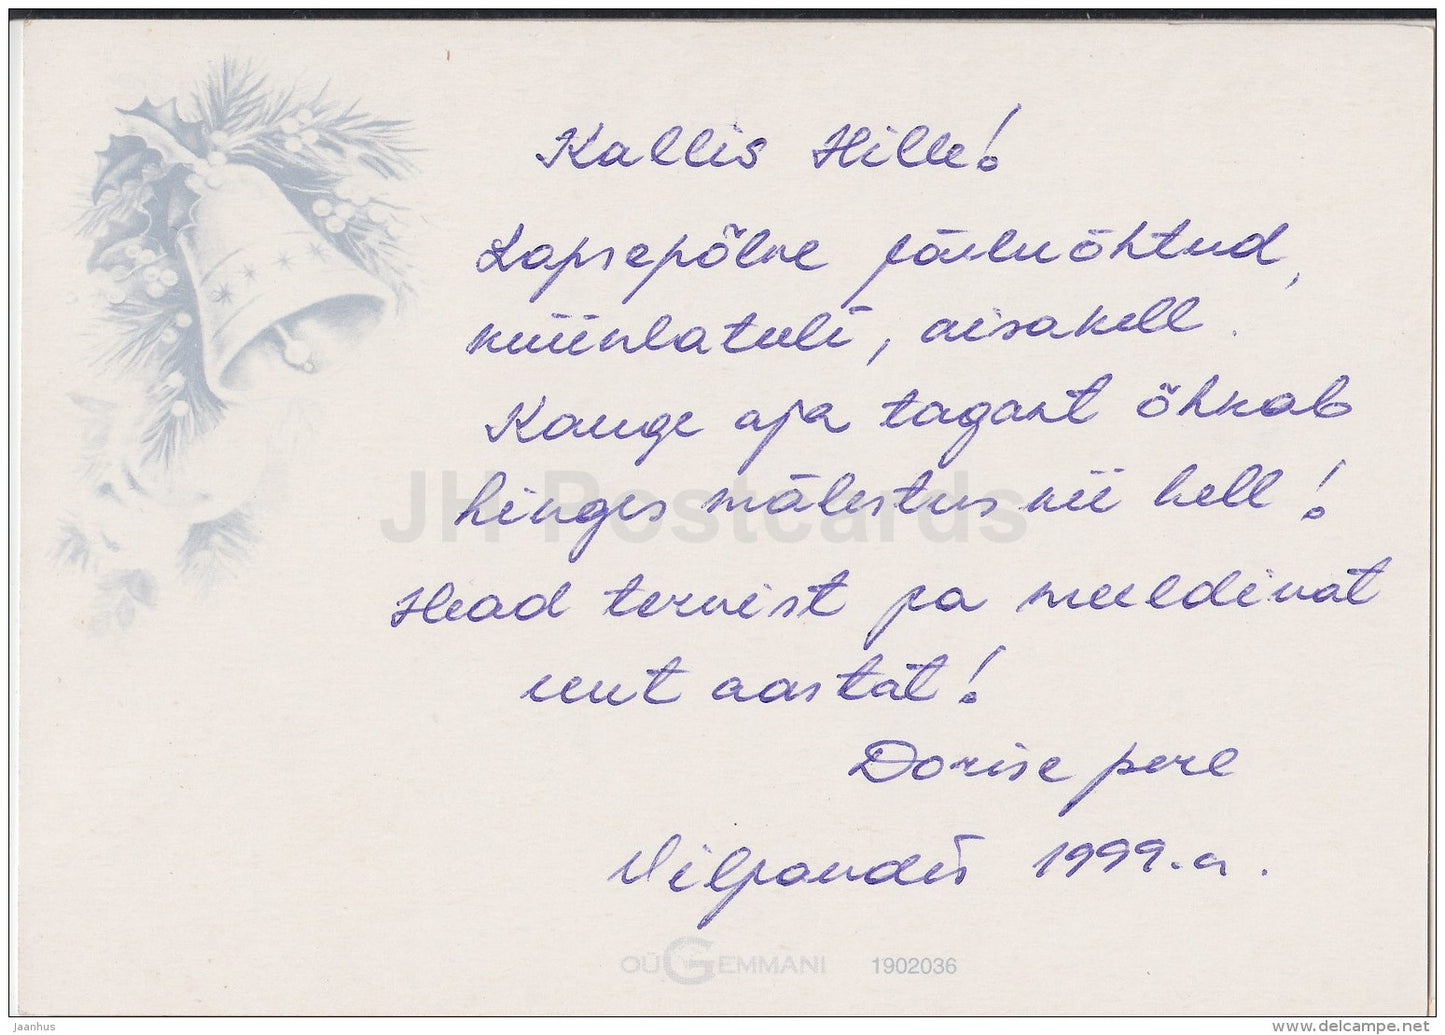 Kallis Hille!
Lapsepõlve jõuluõhtud,
küünlatuli, aisakell.
Kauge aja tagant õhkab
hinges mälestus nii hell!
Head tervist ja meeldivat
uut aastat!
Dorise pere
Viljandis 1999.a.
JH Postcards
OÜ GEMMANI 1902036
Jaanhus
www.delcampe.net